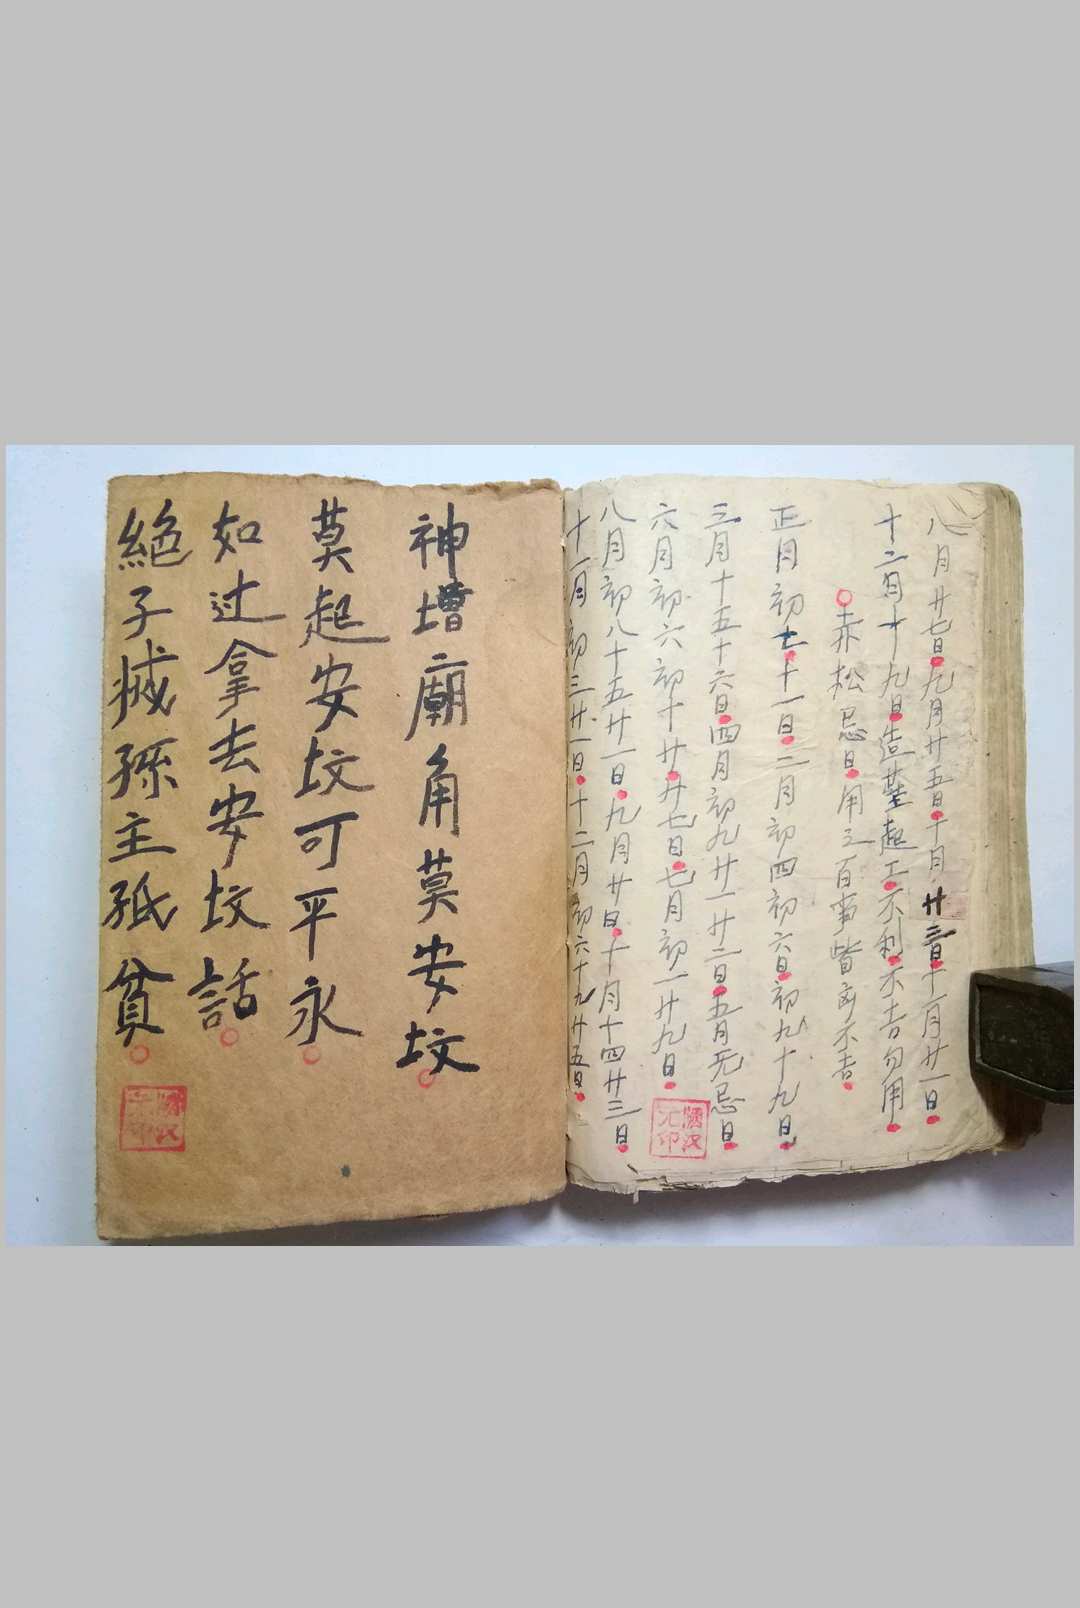 八月廿七日九月廿五日十月廿三日十一月廿一日
十二月十九日造葬起工不利不吉勿用
赤松忌日用之百事皆凶不吉
正月初七十一日二月初四初六日初九十九日
三月十五十六日四月初九廿一廿二日五月无忌日
六月初六初十廿廿七日七月初一廿九日
八月初八十五廿一日九月廿日十月十四廿三日
十一月初三廿一日十二月初六十九廿五日
神壇廟角莫安坟
莫起安坟可平永
如过拿去安坟話
絕子滅孫主孤貧